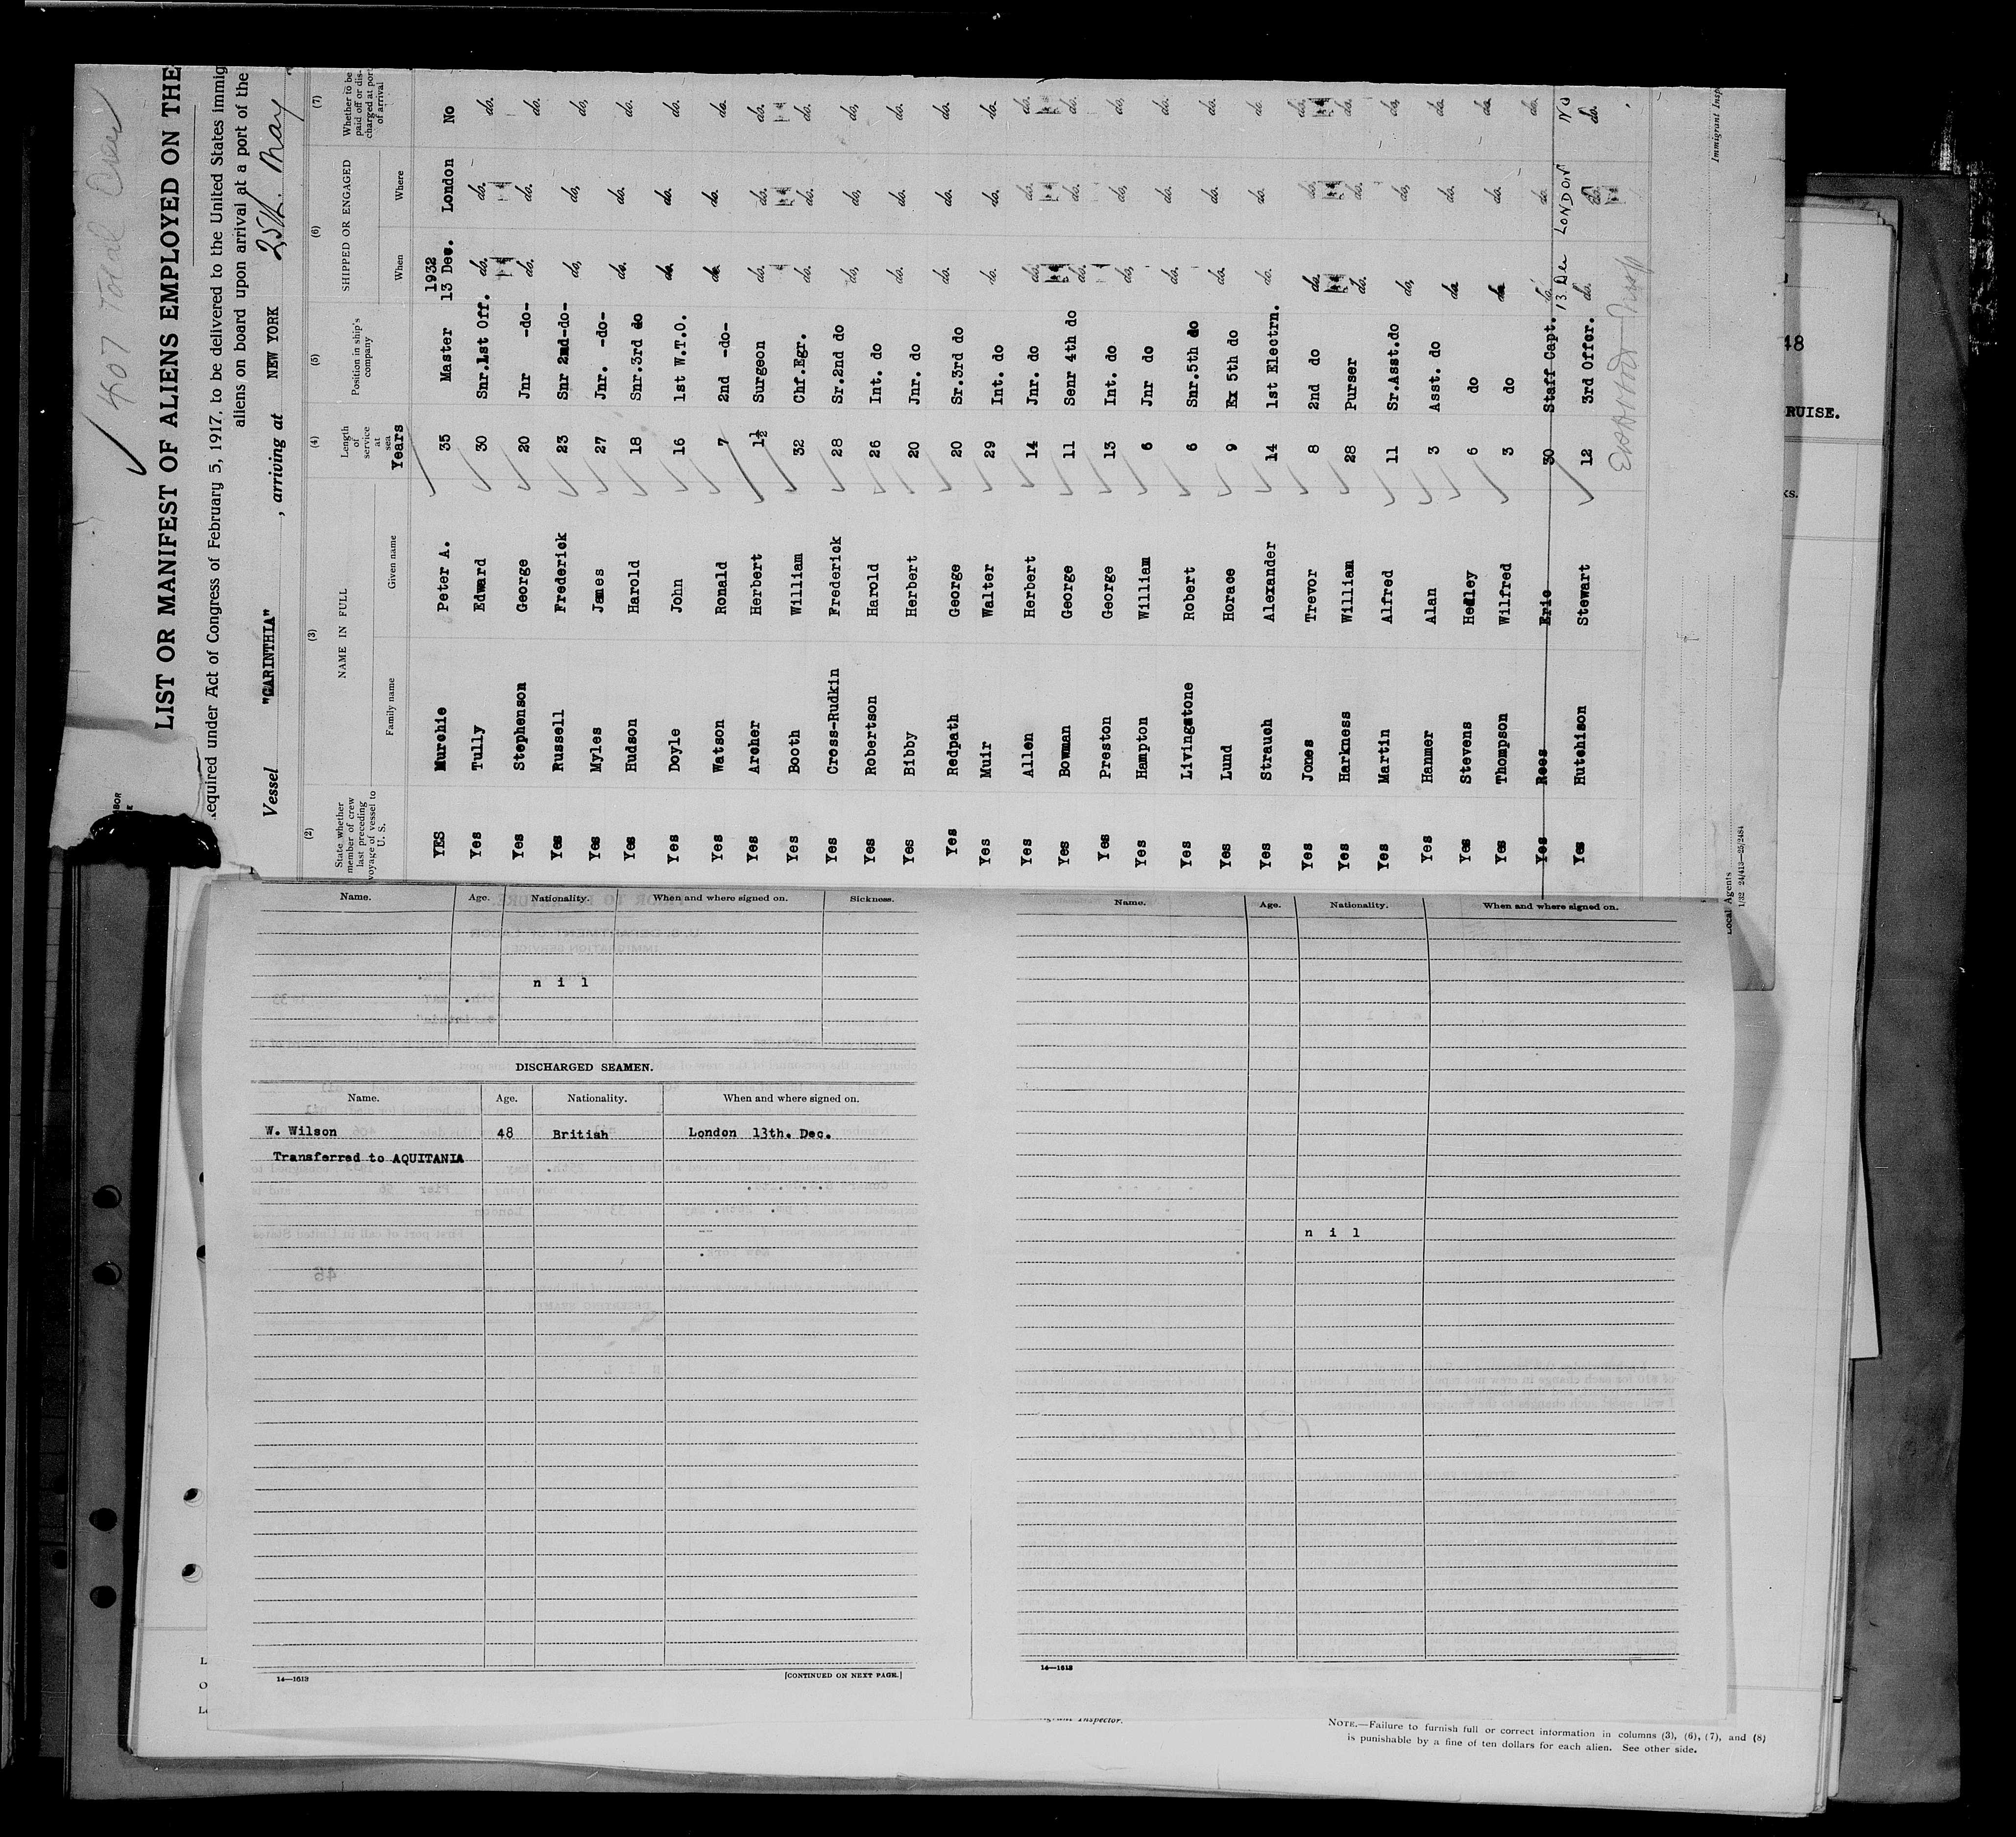 407 Total Crew
LIST OR MANIFEST OF ALIENS EMPLOYED ON THE
equired under Act of Congress of February 5, 1917, to be delivered to the United States immig
aliens on board upon arrival at a port of the
Vessel "CARINTHIA", arriving at NEW YORK 25th. May
(2) (3) (4) (5) (6) (7)
State whether member of crew last preceding voyage of vessel to U. S. NAME IN FULL Family name Given name Length of service at sea Years Position in ship's company SHIPPED OR ENGAGED When Where Whether to be paid off or discharged at port of arrival
YES Murchie Peter A. 35 Master 1932 13 Dec. London No
Yes Tully Edward 30 Snr.1st Off. do. do. do.
Yes Stephenson George 20 Jnr -do- do. do. do.
Yes Russell Frederick 23 Snr 2nd-do- do. do. do.
Yes Myles James 27 Jnr. -do- do. do. do.
Yes Hudson Harold 18 Snr.3rd do do. do. do.
Yes Doyle John 16 1st W.T.O. do. do. do.
Yes Watson Ronald 7 2nd -do- do. do. do.
Yes Archer Herbert 1½ Surgeon do. do. do.
Yes Booth William 32 Chf.Egr. do. do. do.
Yes Cross-Rudkin Frederick 28 Sr.2nd do do. do. do.
Yes Robertson Harold 26 Int. do do. do. do.
Yes Bibby Herbert 20 Jnr. do do. do. do.
Yes Redpath George 20 Sr.3rd do do. do. do.
Yes Muir Walter 29 Int. do do. do. do.
Yes Allen Herbert 14 Jnr. do do. do. do.
Yes Bowman George 11 Senr 4th do do. do. do.
Yes Preston George 13 Int. do do. do. do.
Yes Hampton William 6 Jnr do do. do. do.
Yes Livingstone Robert 6 Snr.5th do do. do. do.
Yes Lund Horace 9 Ex 5th do do. do. do.
Yes Strauch Alexander 14 1st Electrn. do. do. do.
Yes Jones Trevor 8 2nd do do. do. do.
Yes Harkness William 28 Purser do. do. do.
Yes Martin Alfred 11 Sr.Asst.do do. do. do.
Yes Hanmer Alan 3 Asst. do do. do. do.
Yes Stevens Hedley 6 do do. do. do.
Yes Thompson Wilfred 3 do do. do. do.
Yes Rees Eric 30 Staff Capt. do. do. do.
Yes Hutchison Stewart 12 3rd Offcer. 13 Dec LONDON No
do. do. do.
Immigrant Insp
Local Agents
1/32 24/413—25/2484
48
RUISE.
ks.
Name. Age. Nationality. When and where signed on. Sickness.
n i l
DISCHARGED SEAMEN.
Name. Age. Nationality. When and where signed on.
W. Wilson 48 British London 13th. Dec.
Transferred to AQUITANIA
14—1613 [CONTINUED ON NEXT PAGE.]
Name. Age. Nationality. When and where signed on.
n i l
14—1613
Inspector.
NOTE.—Failure to furnish full or correct information in columns (3), (6), (7), and (8)
is punishable by a fine of ten dollars for each alien. See other side.